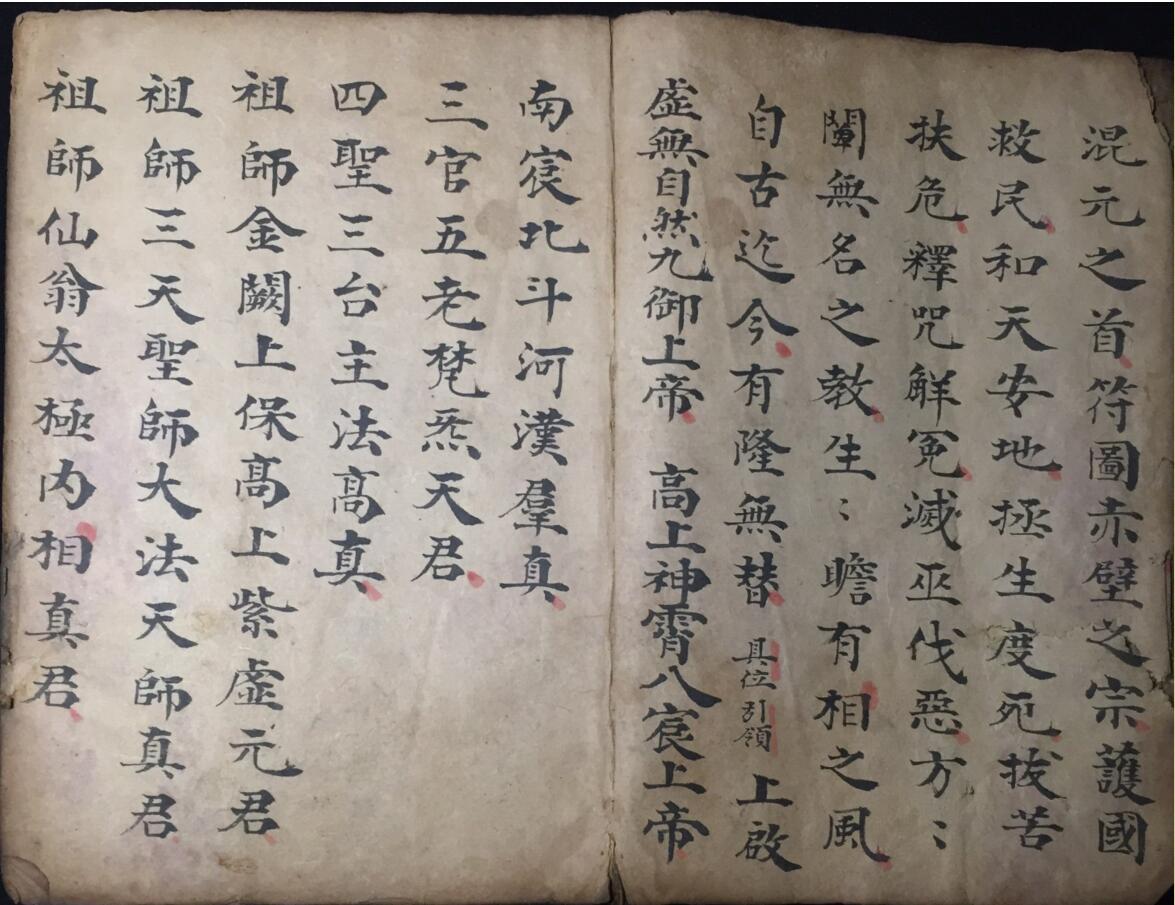 混元之首符圖赤壁之宗護國
救民和天安地拯生度死拔苦
扶危釋咒解冤滅巫伐惡方〻
闡無名之教生〻瞻有相之風
自古迄今有隆無替具位引領上啟
虛無自然九御上帝 高上神霄八宸上帝
南宸北斗河漢羣真
三官五老梵炁天君
四聖三台主法高真
祖師金闕上保高上紫虛元君
祖師三天聖師大法天師真君
祖師仙翁太極內相真君